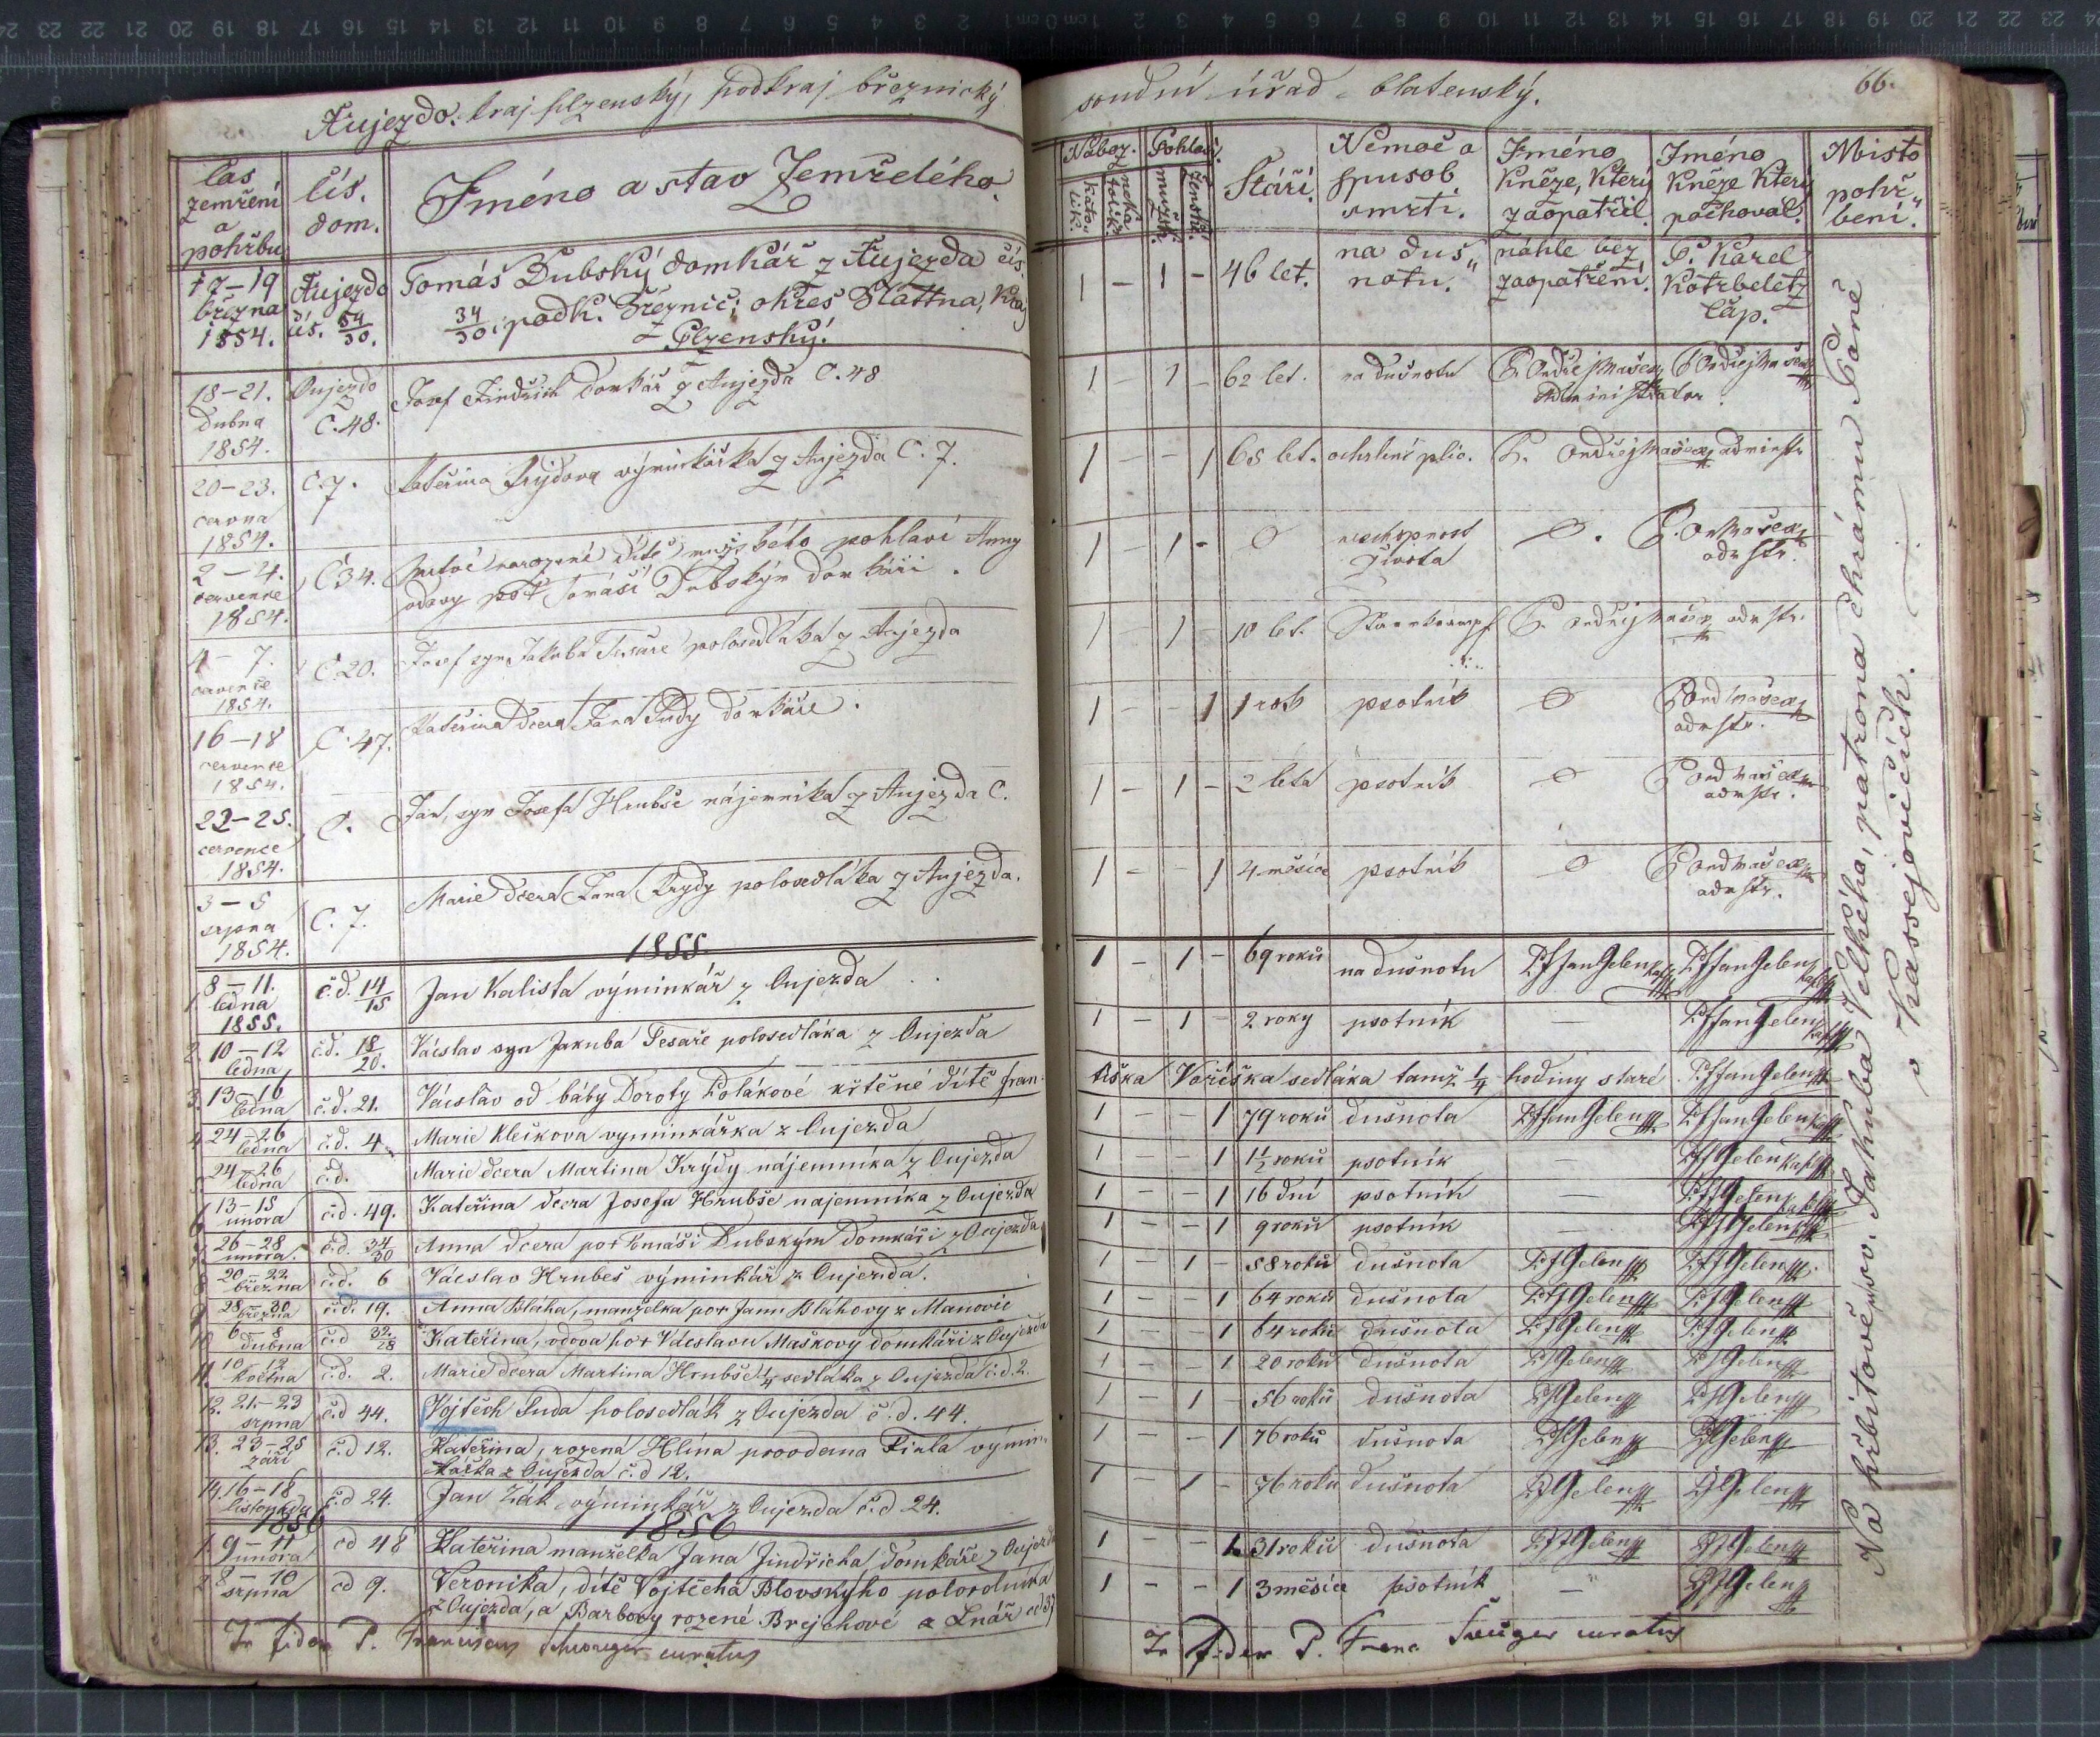 Aujezdo. kraj plzenský, podkraj březnický
soudní úřad blatenský.
66.
čas zemření a pohřbu
čís. dom.
Jméno a stav Zemřelého.
Nábož.
Pohlaví.
Stáří.
Nemoc a spusob smrti.
Jméno Kněze, který zaopatřil.
Jméno Kněze Který pochoval.
Místo pohřbení.
17–19 března 1854. Aujezdo čís. 34/30. Tomáš Dubský domkář z Aujezda čís.
34/30 podk. Březnic; okres Blattna, Kraj
Plzenský.
1 – 1 – 46 let. na dušnotu. náhle bez zaopatření. P. Karel Kotrbeletz
18–21. Dubna 1854. Oujezdo C. 48. Josef Jindřich domkář z Aujezda C. 48
1 – 1 – 62 let. na dušnotu P. Ondřej Mašek Administrator P. Ondřej Mašek
20–23. června 1854. C. 7. Kateřina Krýdova výminkářka z Aujezda C. 7.
1 – – 1 65 let. ochrnutí plic. P. Ondřej Mašek administr
2–4. července 1854. C 34. Mrtvé narozené dítě mužského pohlaví Anny
vdovy po + Tomáši Dubským domkáři.
1 – 1 – 0 neschopnost života 0. P. Ond Mašek
4–7. července 1854. C. 20. Josef syn Jakuba Tesaře polosedláka z Aujezda
1 – 1 – 10 let. P. Ondřej Mašek
16–18 července 1854. C. 47. Kateřina dcera Jana Sudy domkáře.
1 – – 1 1 rok psotník 0 P. Ond Mašek
22–25. července 1854. C. Jan, syn Josefa Hrubše nájemníka z Aujezda C.
1 – 1 – 2 leta psotník 0 P. Ond Mašek
3–5 srpna 1854. C. 7. Marie dcera Jana Krydy polosedláka z Aujezda.
1 – – 1 4 měsíce psotník 0 P. Ond Mašek
1855.
1. 8–11. ledna 1855. č.d. 14/15 Jan Kalista výminkář z Oujezda
1 – 1 – 69 roků na dušnotu Jan Jelen Jan Jelen
2. 10–12 ledna č.d. 18/20. Václav syn Jakuba Tesaře polosedláka z Oujezda
1 – 1 – 2 roky psotník — Jan Jelen
3. 13–16 ledna č.d. 21. Václav od báby Doroty Polákové křtěné dítě Fran-
tiška Voříška sedláka tamž 1/4 hodiny staré. Jan Jelen
4. 24–26 ledna č.d. 4. Marie Klečkova vyminkářka z Oujezda
1 – – 1 79 roků dušnota Jan Jelen Jan Jelen
5. 24–26 ledna č.d. Marie dcera Martina Krýdy nájemníka z Oujezda
1 – – 1 1 1/2 roku psotník — Jelen
6. 13–15 února č.d. 49. Kateřina dcera Josefa Hrubše najemníka z Oujezda
1 – – 1 16 dní psotník — Jelen
7. 26–28 února. č.d. 34/30 Anna dcera po + Tomáši Dubským domkáři z Oujezda
1 – – 1 9 roků psotník — Jelen
8. 20–22 března č.d. 6 Václav Hrubeš výminkář z Oujezda.
1 – 1 – 58 roků dušnota Jelen Jelen
9. 28–30 března č.d. 19. Anna Bláha, manželka po + Janu Bláhovy z Manovic
1 – – 1 64 roků dušnota Jelen Jelen
10. 6–8 dubna č.d 32/28 Kateřina, vdova po + Václavu Maškovy domkáři z Oujezda
1 – – 1 64 roků dušnota Jelen Jelen
11. 10–12 května č.d. 2. Marie dcera Martina Hrubše 1/4 sedláka z Oujezda č.d. 2.
1 – – 1 20 roků dušnota Jelen Jelen
12. 21–23 srpna č.d 44. Vojtěch Suda polosedlák z Oujezda č.d. 44.
1 – 1 – 56 roků dušnota Jelen Jelen
13. 23–25 září č.d 12. Kateřina, rozená Hlína provdana Fiala výmin-
kářka z Oujezda č.d 12.
1 – – 1 76 roků dušnota Jelen Jelen
14. 16–18 listopadu č.d 24. Jan Žák, výminkář z Oujezda č.d 24.
1 – 1 – 76 roku dušnota Jelen Jelen
1856
1. 9–11 února čd 48 Kateřina manželka Jana Jindřicha domkáře z Oujezda
1 – 1. 31 roků dušnota Jelen Jelen
2. 8–10 srpna čd 9. Veronika, dítě Vojtěcha Blovskýho polorolníka
z Oujezda, a Barbory rozené Brejchové z Lnář čd 37
1 – – 1 3 měsíce psotník — Jelen
In fidem P. Franciscus curatus
In fidem P. Franc curatus
Na hřbitově sv. Jakuba Velkého, patrona chrámu Páně
v Kassejovicích.